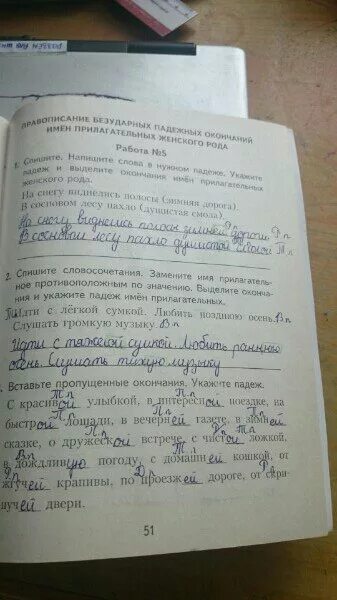 ПРАВОПИСАНИЕ БЕЗУДАРНЫХ ПАДЕЖНЫХ ОКОНЧАНИЙ
ИМЁН ПРИЛАГАТЕЛЬНЫХ ЖЕНСКОГО РОДА
Работа №5
1. Спишите. Напишите слова в нужном падеже. Укажите
падеж и выделите окончания имён прилагательных
женского рода.
На снегу виднелись полосы (зимняя дорога).
В сосновом лесу пахло (душистая смола).
На снегу виднелись полосы зимней дороги. Р.п
В сосновом лесу пахло душистой смолой Т.п
2. Спишите словосочетания. Замените имя прилагатель-
ное противоположным по значению. Выделите оконча-
ния и укажите падеж имён прилагательных.
Идти с лёгкой сумкой. Любить позднюю осень. В.п
Слушать громкую музыку. В.п
Идти с тяжелой сумкой. Любить раннюю
осень. Слушать тихую музыку
Вставьте пропущенные окончания. Укажите падеж.
С красивой улыбкой, в интересной поездке, на
быстрой лошади, в вечерней газете, в зимней
сказке, о дружеской встрече, с чистой ложкой,
в дождливую погоду, с домашней кошкой, от
жгучей крапивы, по проезжей дороге, от скри-
пучей двери.
51